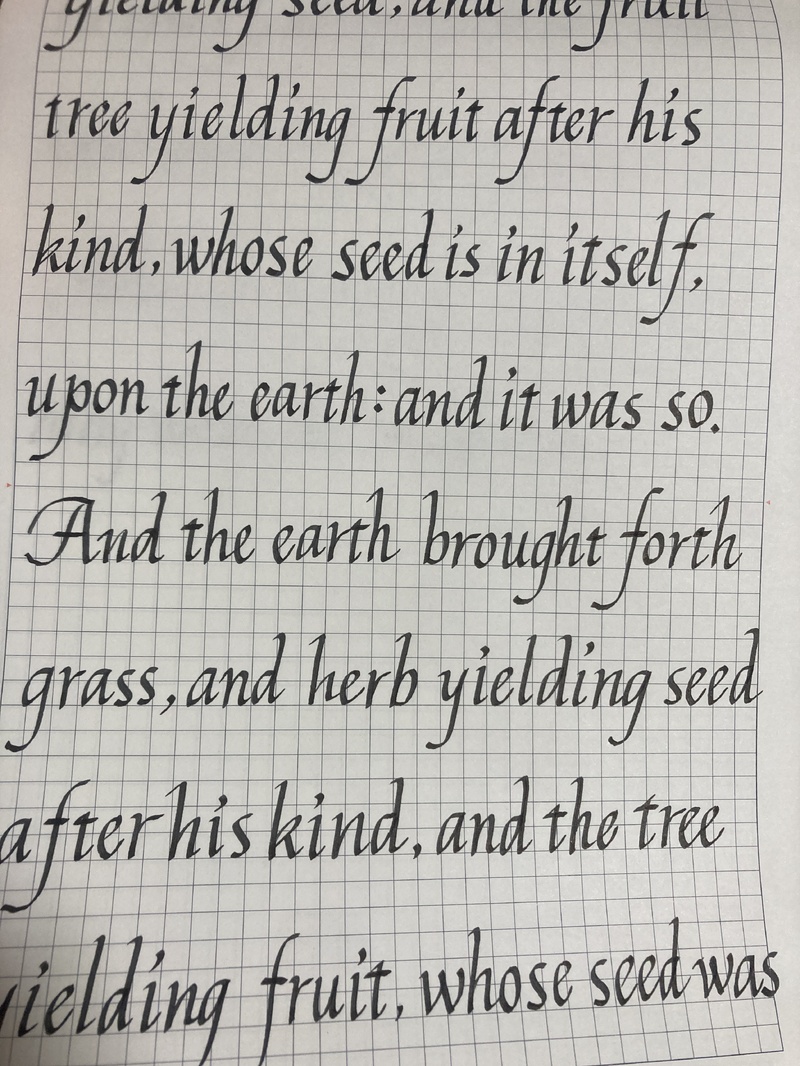 yielding seed, and the fruit
tree yielding fruit after his
kind, whose seed is in itself,
upon the earth: and it was so.
And the earth brought forth
grass, and herb yielding seed
after his kind, and the tree
yielding fruit, whose seed was